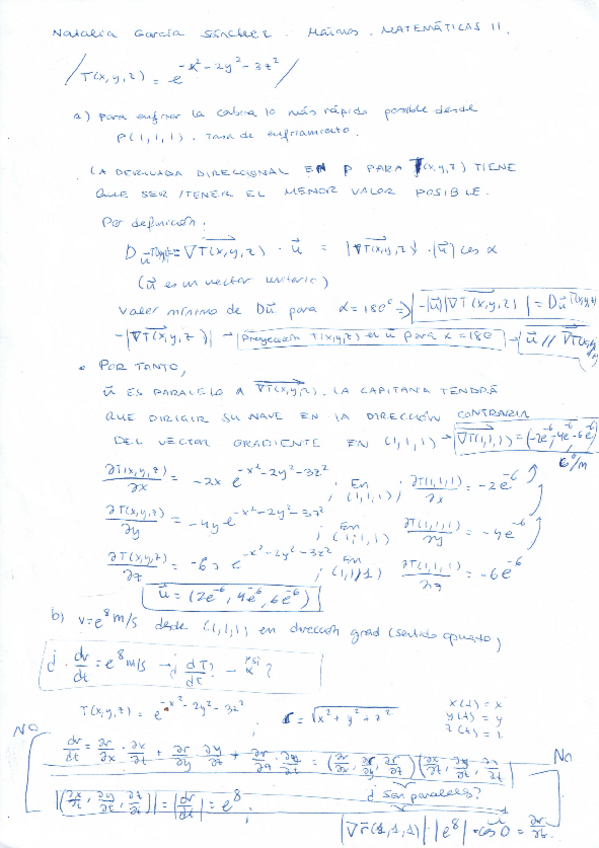 Natalia García Sánchez. Máinos. MATEMÁTICAS II.
/ T(x,y,z) = e^{-x²-2y²-3z²} /
a) Para enfriar la cabina lo más rápido posible desde
P(1,1,1). Tasa de enfriamiento.
LA DERIVADA DIRECCIONAL EN P PARA T(x,y,z) TIENE
QUE SER/TENER EL MENOR VALOR POSIBLE.
Por definición:
D_u⃗ T(x,y,z) = ∇T(x,y,z) · u⃗ = |∇T(x,y,z)| · |u⃗| cos α
(u⃗ es un vector unitario)
Valor mínimo de Du⃗ para α = 180° ⇒ -|u⃗||∇T(x,y,z)| = Du⃗ T(x,y,z)
-|∇T(x,y,z)| → Proyección T(x,y,z) en u⃗ para α = 180 → u⃗ // ∇T(x,y,z)
• POR TANTO,
u⃗ ES PARALELO A ∇T(x,y,z). LA CAPITANA TENDRÁ
QUE DIRIGIR SU NAVE EN LA DIRECCIÓN CONTRARIA
DEL VECTOR GRADIENTE EN (1,1,1) → ∇T(1,1,1) = (-2e^{-6}, -4e^{-6}, -6e^{-6})
6°/m
∂T(x,y,z)/∂x = -2x e^{-x²-2y²-3z²} ; En (1,1,1) ; ∂T(1,1,1)/∂x = -2e^{-6}
∂T(x,y,z)/∂y = -4y e^{-x²-2y²-3z²} ; En (1,1,1) ∂T(1,1,1)/∂y = -4e^{-6}
∂T(x,y,z)/∂z = -6z e^{-x²-2y²-3z²} ; En (1,1,1) ∂T(1,1,1)/∂z = -6e^{-6}
u⃗ = (2e^{-6}, 4e^{-6}, 6e^{-6})
b) v = e⁸ m/s desde (1,1,1) en dirección grad (sentido opuesto)
¿ · dr/dt = e⁸ m/s → ¿ dT/dt ?
T(x,y,z) = e^{-x²-2y²-3z²} ; r = √(x²+y²+z²)
x(t) = x
y(t) = y
z(t) = z
NO
dr/dt = ∂r/∂x · ∂x/∂t + ∂r/∂y · ∂y/∂t + ∂r/∂z · ∂z/∂t = (∂r/∂x, ∂r/∂y, ∂r/∂z)(∂x/∂t, ∂y/∂t, ∂z/∂t)
No
¿ son paralelos?
|(∂x/∂t, ∂y/∂t, ∂z/∂t)| = |dr/dt| = e⁸ ;
|∇r⃗(1,1,1)| · |e⁸| · cos 0 = ∂r/∂t.